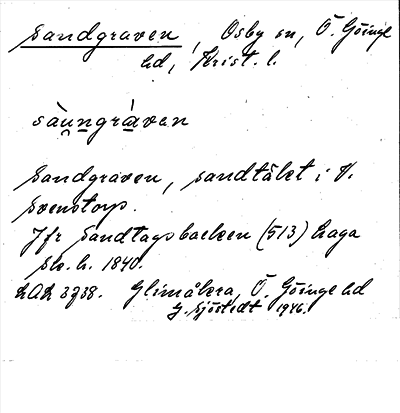 Sandgraven, Osby sn, Ö. Göinge
hd, Krist. l.
sàu̯ngràven
Sandgraven, sandtäkt i V.
Svenstorp.
Jfr Sandtagsbacken (513) Laga
sk. h. 1840.
LAL 3738. Glimåkra, Ö. Göinge hd
G. Sjöstedt 1946.